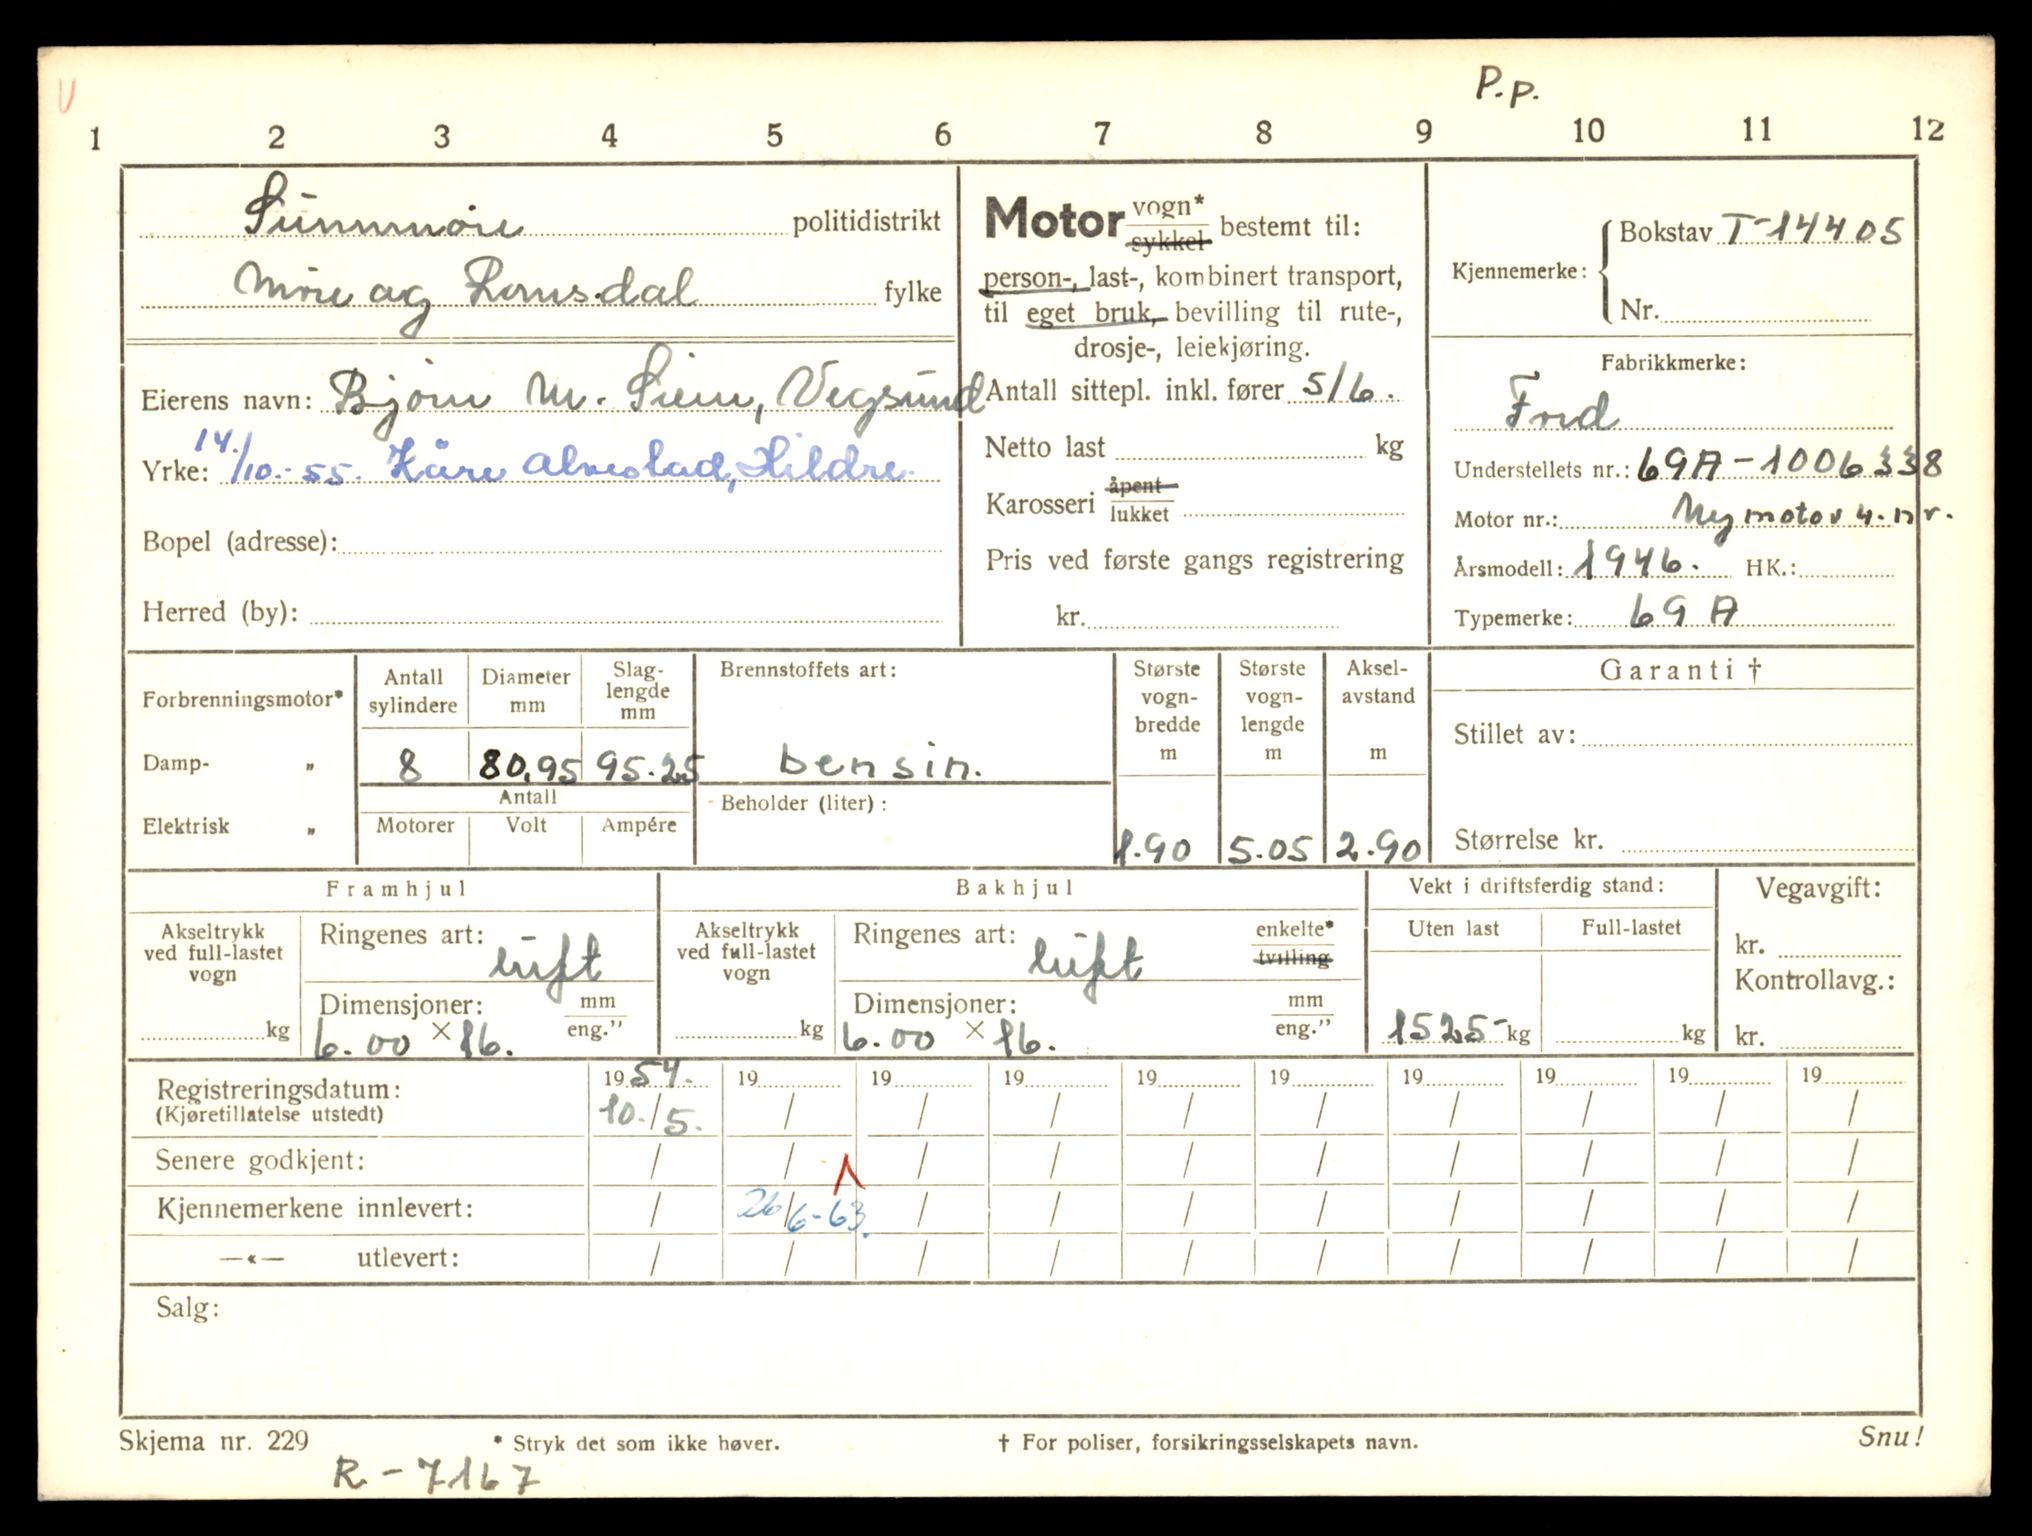 V
P.p.
1 2 3 4 5 6 7 8 9 10 11 12
Sunnmöre politidistrikt
Möre og Romsdal fylke
Eierens navn: Björn M. Siem, Vegsund
Yrke: 14./10.-55. Kåre Alnestad, Hildre.
Bopel (adresse):
Herred (by):
Motor vogn* sykkel bestemt til:
person-, last-, kombinert transport,
til eget bruk, bevilling til rute-,
drosje-, leiekjøring.
Antall sittepl. inkl. fører 5/6.
Netto last kg
Karosseri åpent lukket
Pris ved første gangs registrering
kr.
Kjennemerke: Bokstav T-14405
Nr.
Fabrikkmerke:
Ford
Understellets nr.: 69A-1006338
Motor nr.: Ny motor u.nr.
Årsmodell: 1946. HK.:
Typemerke: 69 A
Forbrenningsmotor*
Damp- „
Elektrisk „
Antall sylindere
Diameter mm
Slag-lengde mm
8 80,95 95.25
Antall
Motorer Volt Ampére
Brennstoffets art:
bensin.
Beholder (liter):
Største vogn-bredde m
Største vogn-lengde m
Aksel-avstand m
1.90 5.05 2.90
Garanti †
Stillet av:
Størrelse kr.
Framhjul
Akseltrykk ved full-lastet vogn
kg
Ringenes art: luft
Dimensjoner: mm eng.”
6.00 × 16.
Bakhjul
Akseltrykk ved full-lastet vogn
kg
Ringenes art: luft enkelte* tvilling
Dimensjoner: mm eng.”
6.00 × 16.
Vekt i driftsferdig stand:
Uten last Full-lastet
1525- kg kg
Vegavgift:
kr.
Kontrollavg.:
kr.
Registreringsdatum: 1954. 19 19 19 19 19 19 19 19 19
(Kjøretillatelse utstedt) 10./5. / / / / / / / / /
Senere godkjent: / / / / / / / / / /
Kjennemerkene innlevert: / 26/6-63. / / / / / / / /
—«— utlevert: / / / / / / / / / /
Salg:
Skjema nr. 229 * Stryk det som ikke høver. † For poliser, forsikringsselskapets navn. Snu!
R-7167